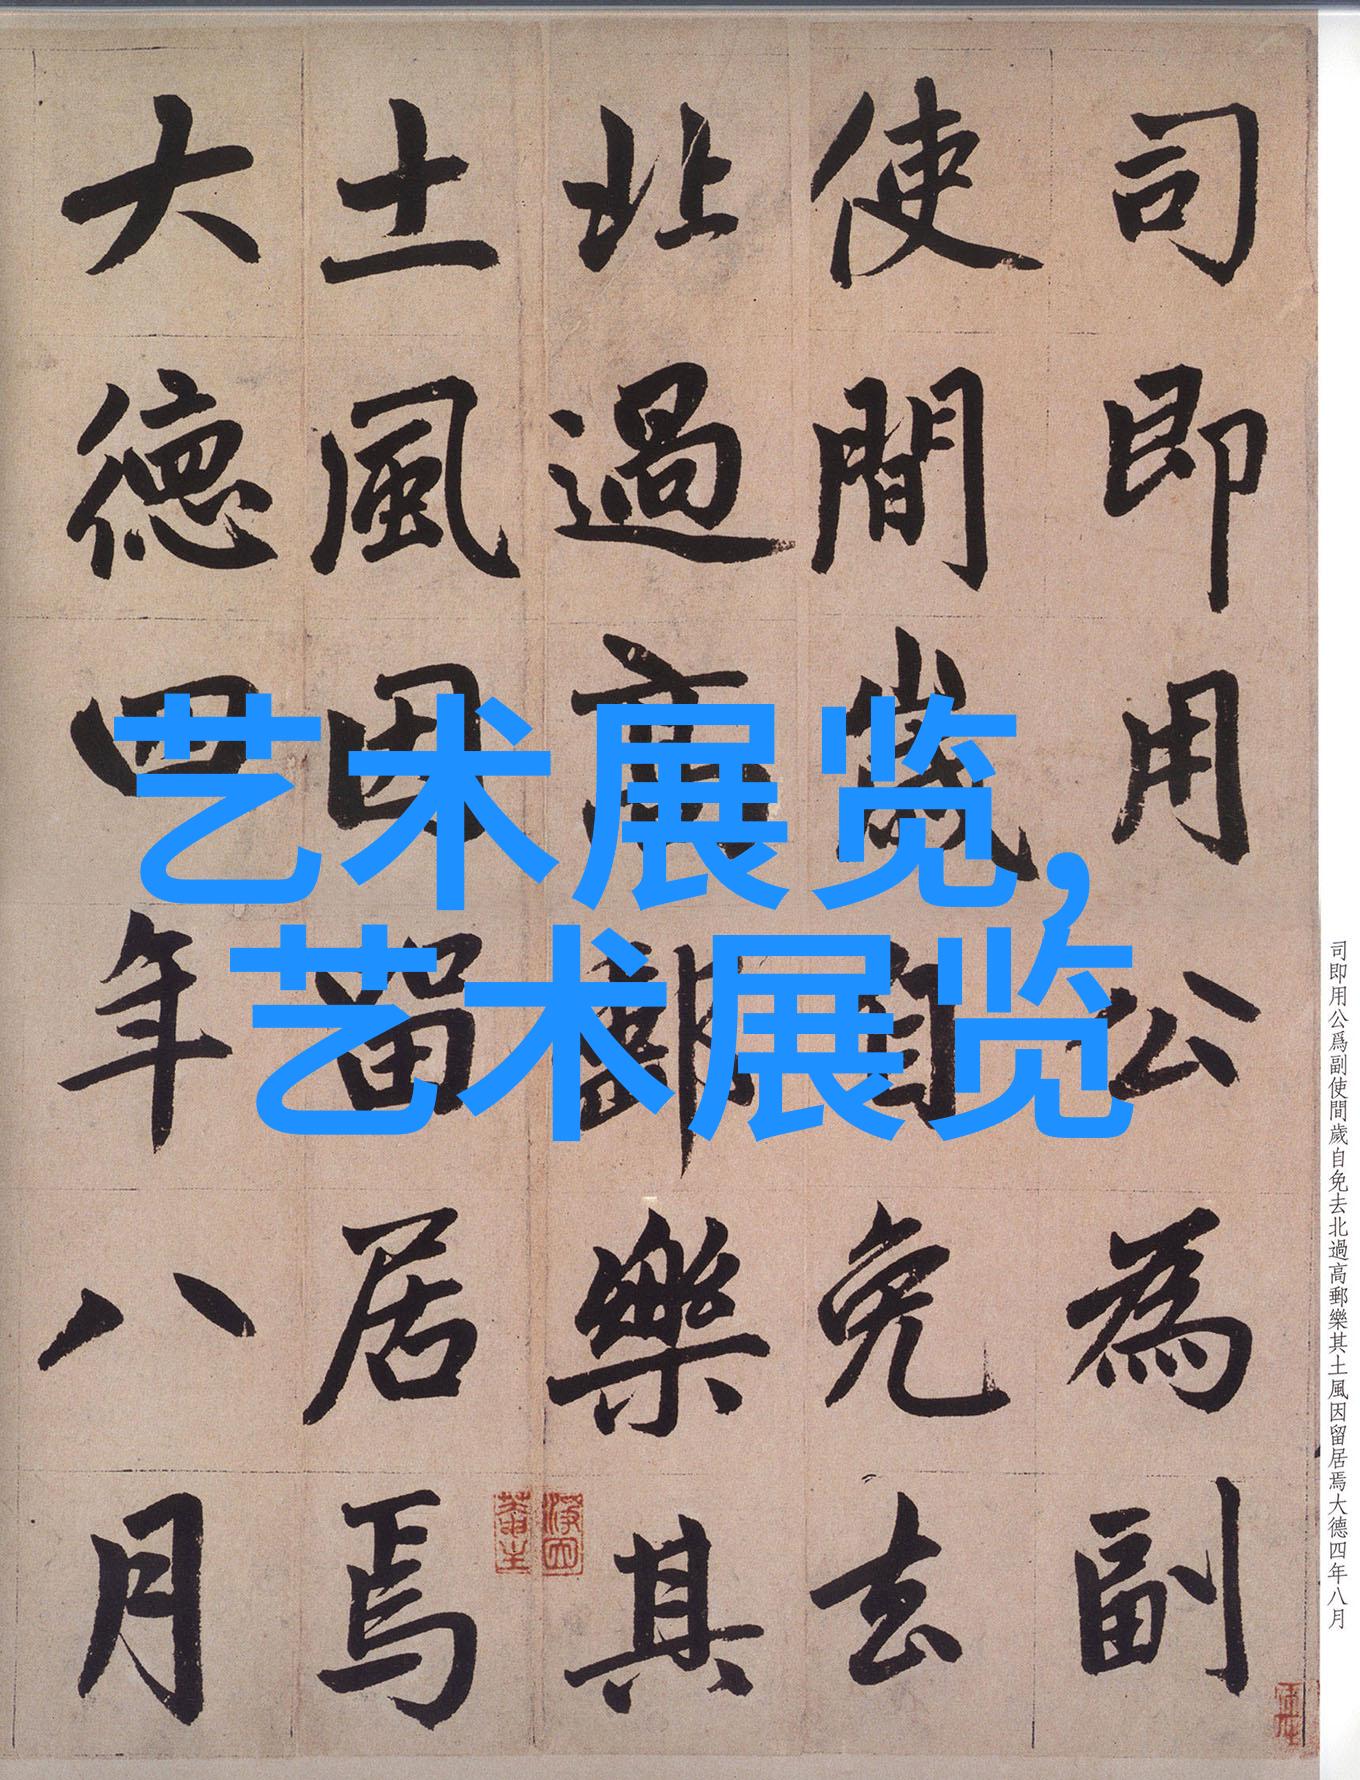 司即用公為副
使間歲自免去
北過高郵樂其
土風因留居焉
大德四年八月
艺术展览，
艺术展览
司即用公爲副使間歲自免去北過高郵樂其土風因留居焉大德四年八月